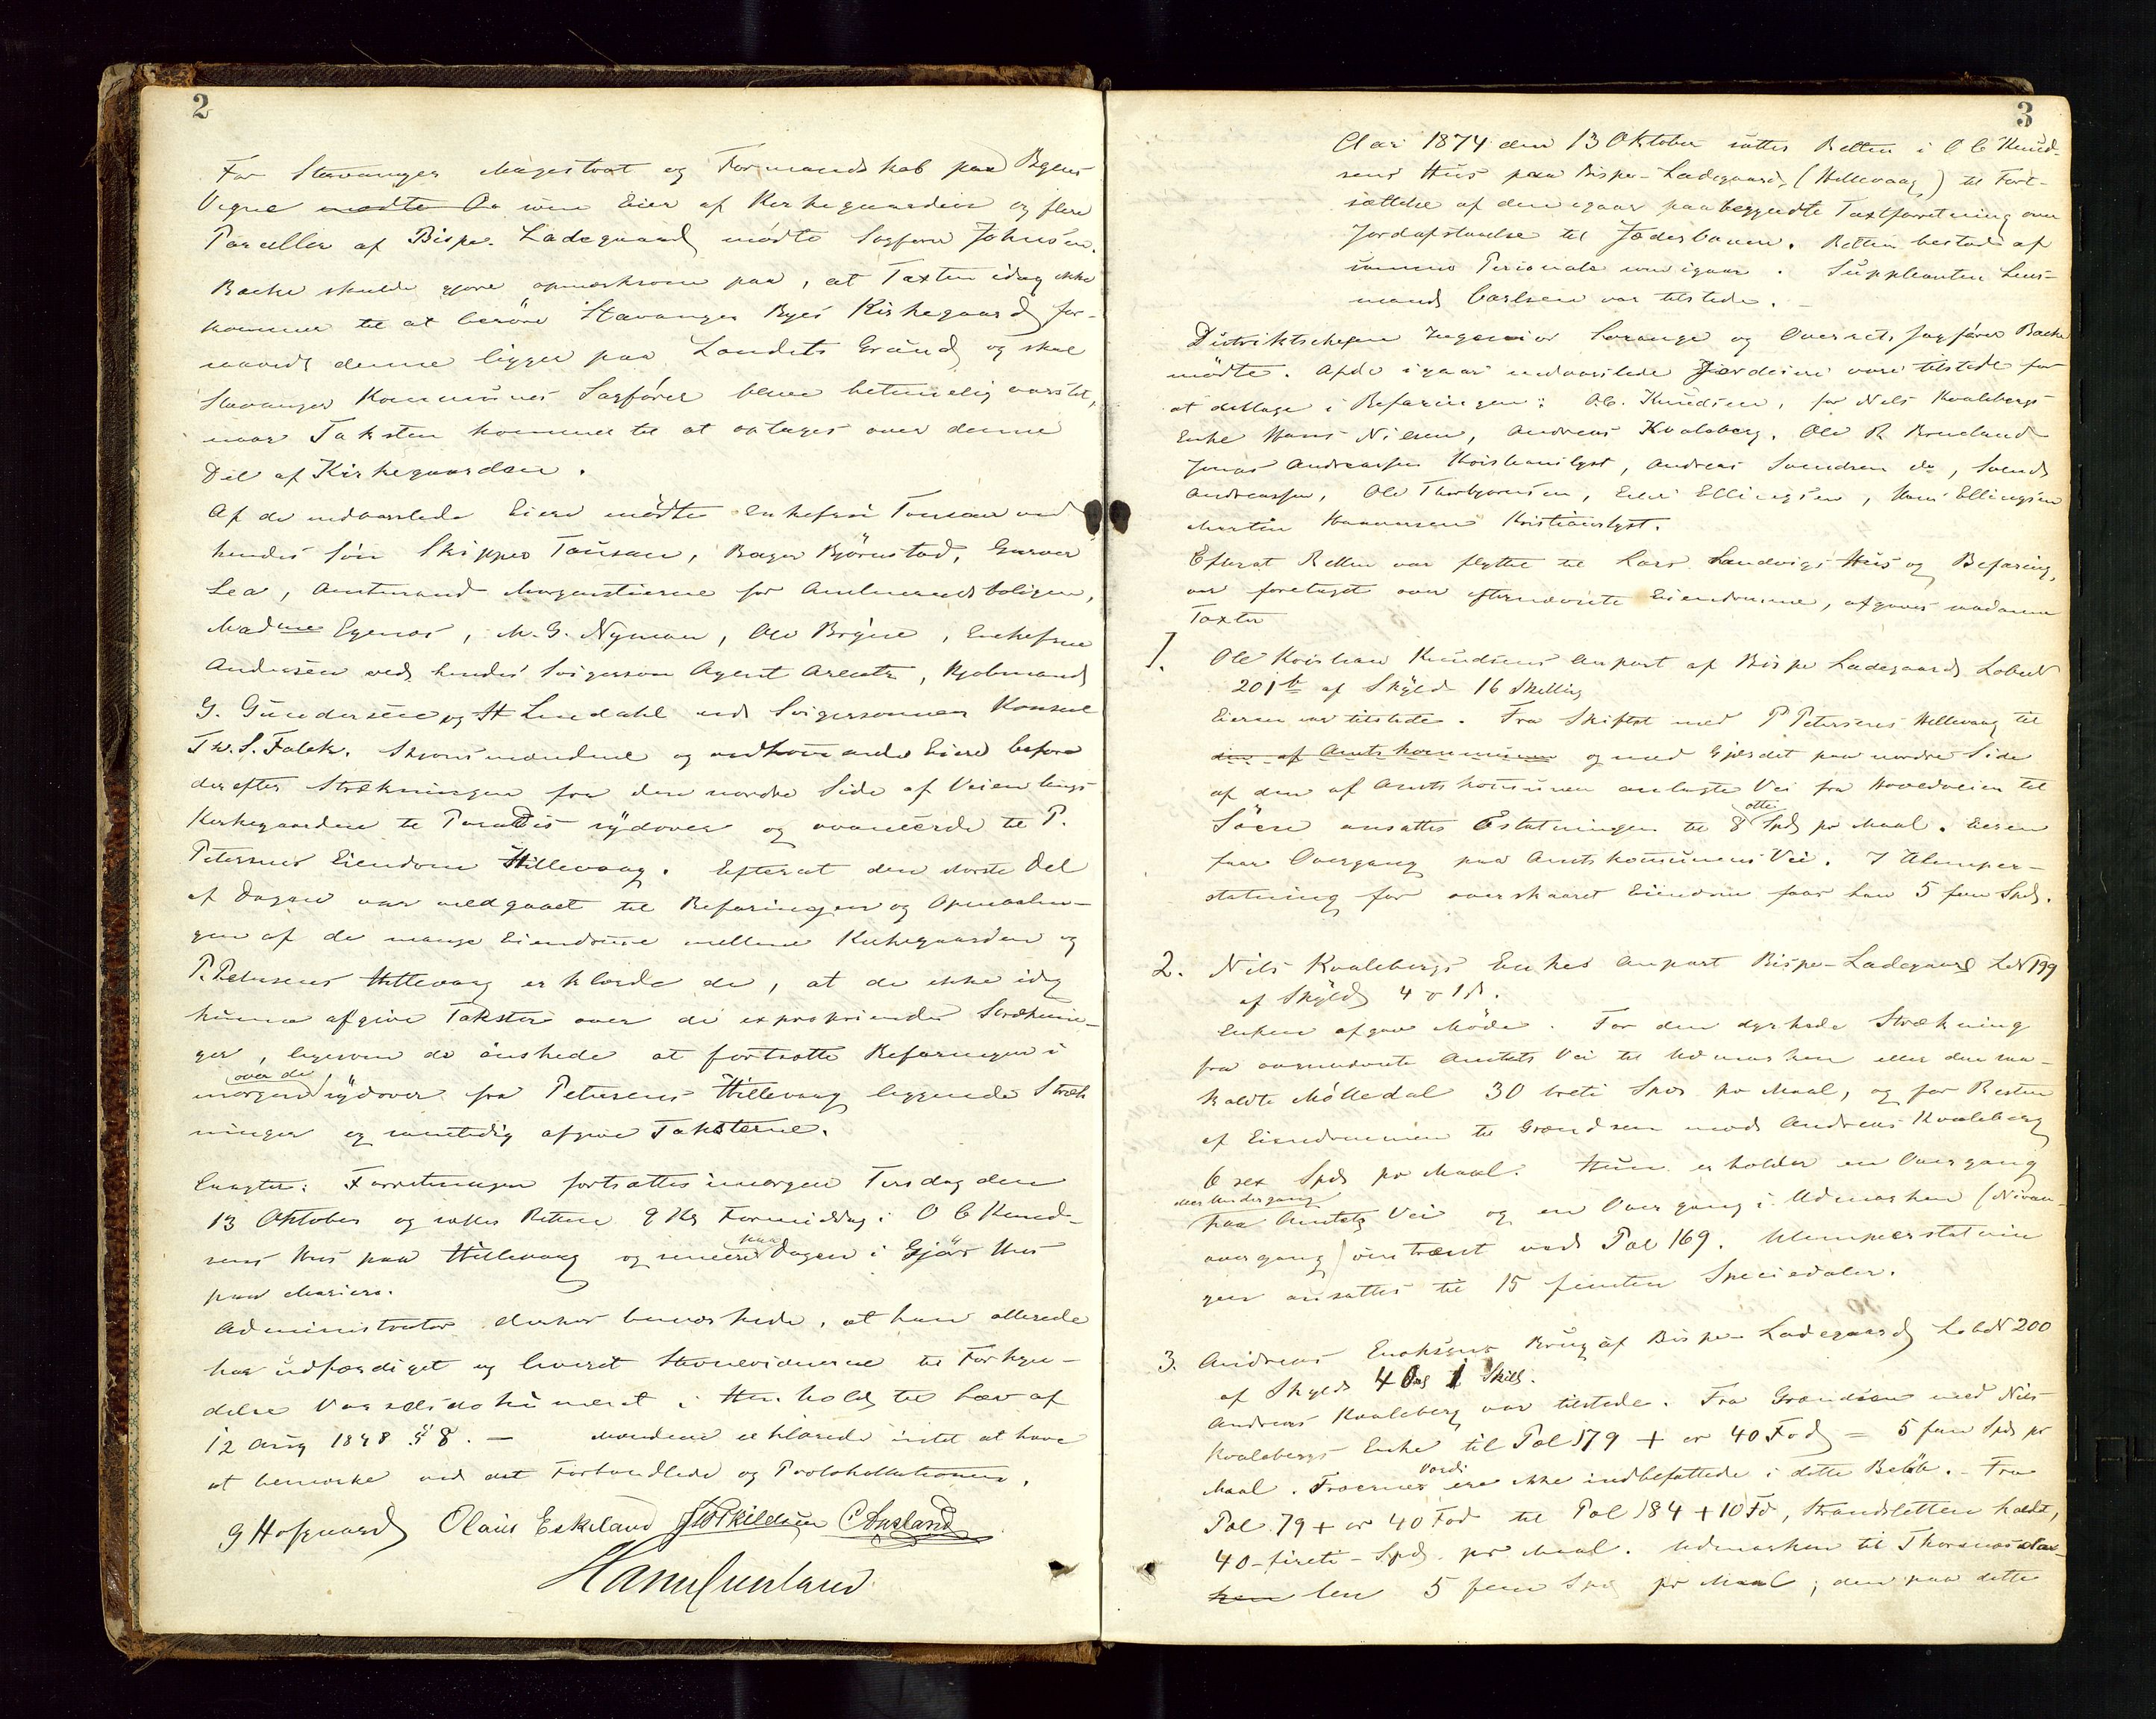 2
For Stavanger Magistrat og Formandskab paa Byens
Vegne mødte Oa som Eier af Kirkegaarden og flere
Parceller af Bispe-Ladegaard mødte Sagfører Johnsen.
Backe skulde gjøre opmærksom paa, at Taxten idag ikke
kommer til at berøre Stavanger Byes Kirkegaard for-
saavidt denne ligger paa Landets Grund og skal
Stavanger Kommunes Sagfører blive betimelig varslet,
naar Taksten kommer til at optages over denne
Del af Kirkegaarden.
Af de indvarslede Eiere mødte Enkefru Tousan ved
hendes Søn Skipper Tousan, Bager Bjørnstad, Garver
Lea, Amtmand Morgenstierne for Amtmandsboligen,
Madme Egenæs, M. G. Nyman, Ole Bryne, Enkefrue
Andersen ved hendes Svigersøn Agent Arentz, Kjøbmand
G. Gundersen og St Lindahl ved Svigersønnen Konsul
Th. S. Falck. Skjønsmændene og vedkommende Eiere before
derefter Strækningen fra den nordre Side af Veien langs
Kirkegaarden til Paradis sydover og avancerede til P.
Petersens Eiendom Hillevaag. Efterat den største Del
af Dagen var medgaaet til Befaringen og Opmaalin-
gen af de mange Eiendomme mellem Kirkegaarden og
P. Petersens Hillevaag erklærede de, at de ikke idag
kunne afgive Takster over de exproprierede Stræknin-
ger, ligesom de ønskede at fortsætte Befaringen i
over de
morgen sydover fra Petersens Hillevaag liggende Stræk
ninger og samtidig afgive Taksterne.
Eragtet: Forretningen fortsættes imorgen Tirsdag den
13 Oktober og sættes Retten 9 Kl Formiddag i O C Knud-
paa
sens Hus paa Hillevaag og senere Dagen i Hus
paa Mariero.
Administrator derhos bemærkede, at han allerede
har udfærdiget og leveret Stævnevidnerne til Forkyn-
delse Varselsdokumeret i Henhold til Lov af
12 Aug 1848 § 8. — Mændene erklærede intet at have
at bemærke ved det Forhandlede og Protokollationen.
G Hofgaard Olaus Eskeland
3
Aar 1874 den 13 Oktober sattes Retten i O C Knud-
sens Hus paa Bispe-Ladegaard (Hillevaag) til Fort-
sættelse af den igaar paabegyndte Taxtforretning over
Jordafstaaelse til Jæderbanen. Retten bestod af
samme Personale som igaar. Suppleanten Lens-
mand Carlsen var tilstede. –
Distriktschefen Ingeniør Lorange og Overrets Sagfører Backe
mødte. Af de igaar indvarslede Jordeiere vare tilstede for
at deltage i Befaringen: O.C. Knudsen, for Nils Kvalebergs
Enke Hans Nilsen, Andreas Kvaleberg, Ole R.
Jonas Andreassen Kristianslyst, Andreas Svendsen do, Svend
Andreassen, Ole Thorbjørnsen, Ellingsen, Hans Ellingsen
Martin Kristianslyst.
Efterat Retten var flyttet til Lars Landvigs Hus og Befaring,
var foretaget over efternævnte Eiendomme, afgaves saadanne
Taxter
1. Ole Kristian Knudsens Anpart af Bispe Ladegaard Løbe N
201b af Skyld 16 Skilling
Eieren var tilstede. Fra Skiftet med P Petersens Hillevaag til
den af Amtskommunen og med Gjærdet paa nordre Side
af den af Amtskommunen anlagte Vei fra Hovedveien til
otte
Søen ansattes Erstatningen til 8 Spd pr Maal. Eieren
faar Overgang paa Amtskommunens Vei. I Ulemper-
statning for overskaaret Eiendom faar han 5 fem Spd.
2. Nils Kvalebergs Enkes Anpart Bispe-Ladegaard LN 199
af Skyld 4 1 .
Enken afgav Møde. For den dyrkede Strækning
fra ovennævnte Amtets Vei til Udmarken eller den saa-
kaldte Mølledal 30 treti Spd pr Maal, og for Resten
af Eiendommen til Grændsen mod Andreas Kvaleberg
6 sex Spd pr Maal. Hun erholder en Overgang
eller Undergang
paa Amtets Vei og en Overgang i Udmarken (Niveau-
overgang) omtrent ved Pæl 169. Ulempeerstatnin
gen ansattes til 15 femten Speciedaler.
3. Andreas Enoksens Brug af Bispe-Ladegaard Løb N 200
af Skyld 4 Ort 1 Skill.
Andreas Kvaleberg var tilstede. Fra Grændsen med Nils
Kvalebergs Enke til Pæl 179 + 40 Fod = 5 fem Spd pr
Værdi
Maal. Træernes ere ikke indbefattede i dette Beløb. – Fra
Pæl 79 + 40 Fod til Pæl 184 + 10 Fd, Strandsletten kaldt,
40 - fireti - Spd. pr Maal. Udmarken til
ken len 5 fem Spd pr Maal; den paa dette